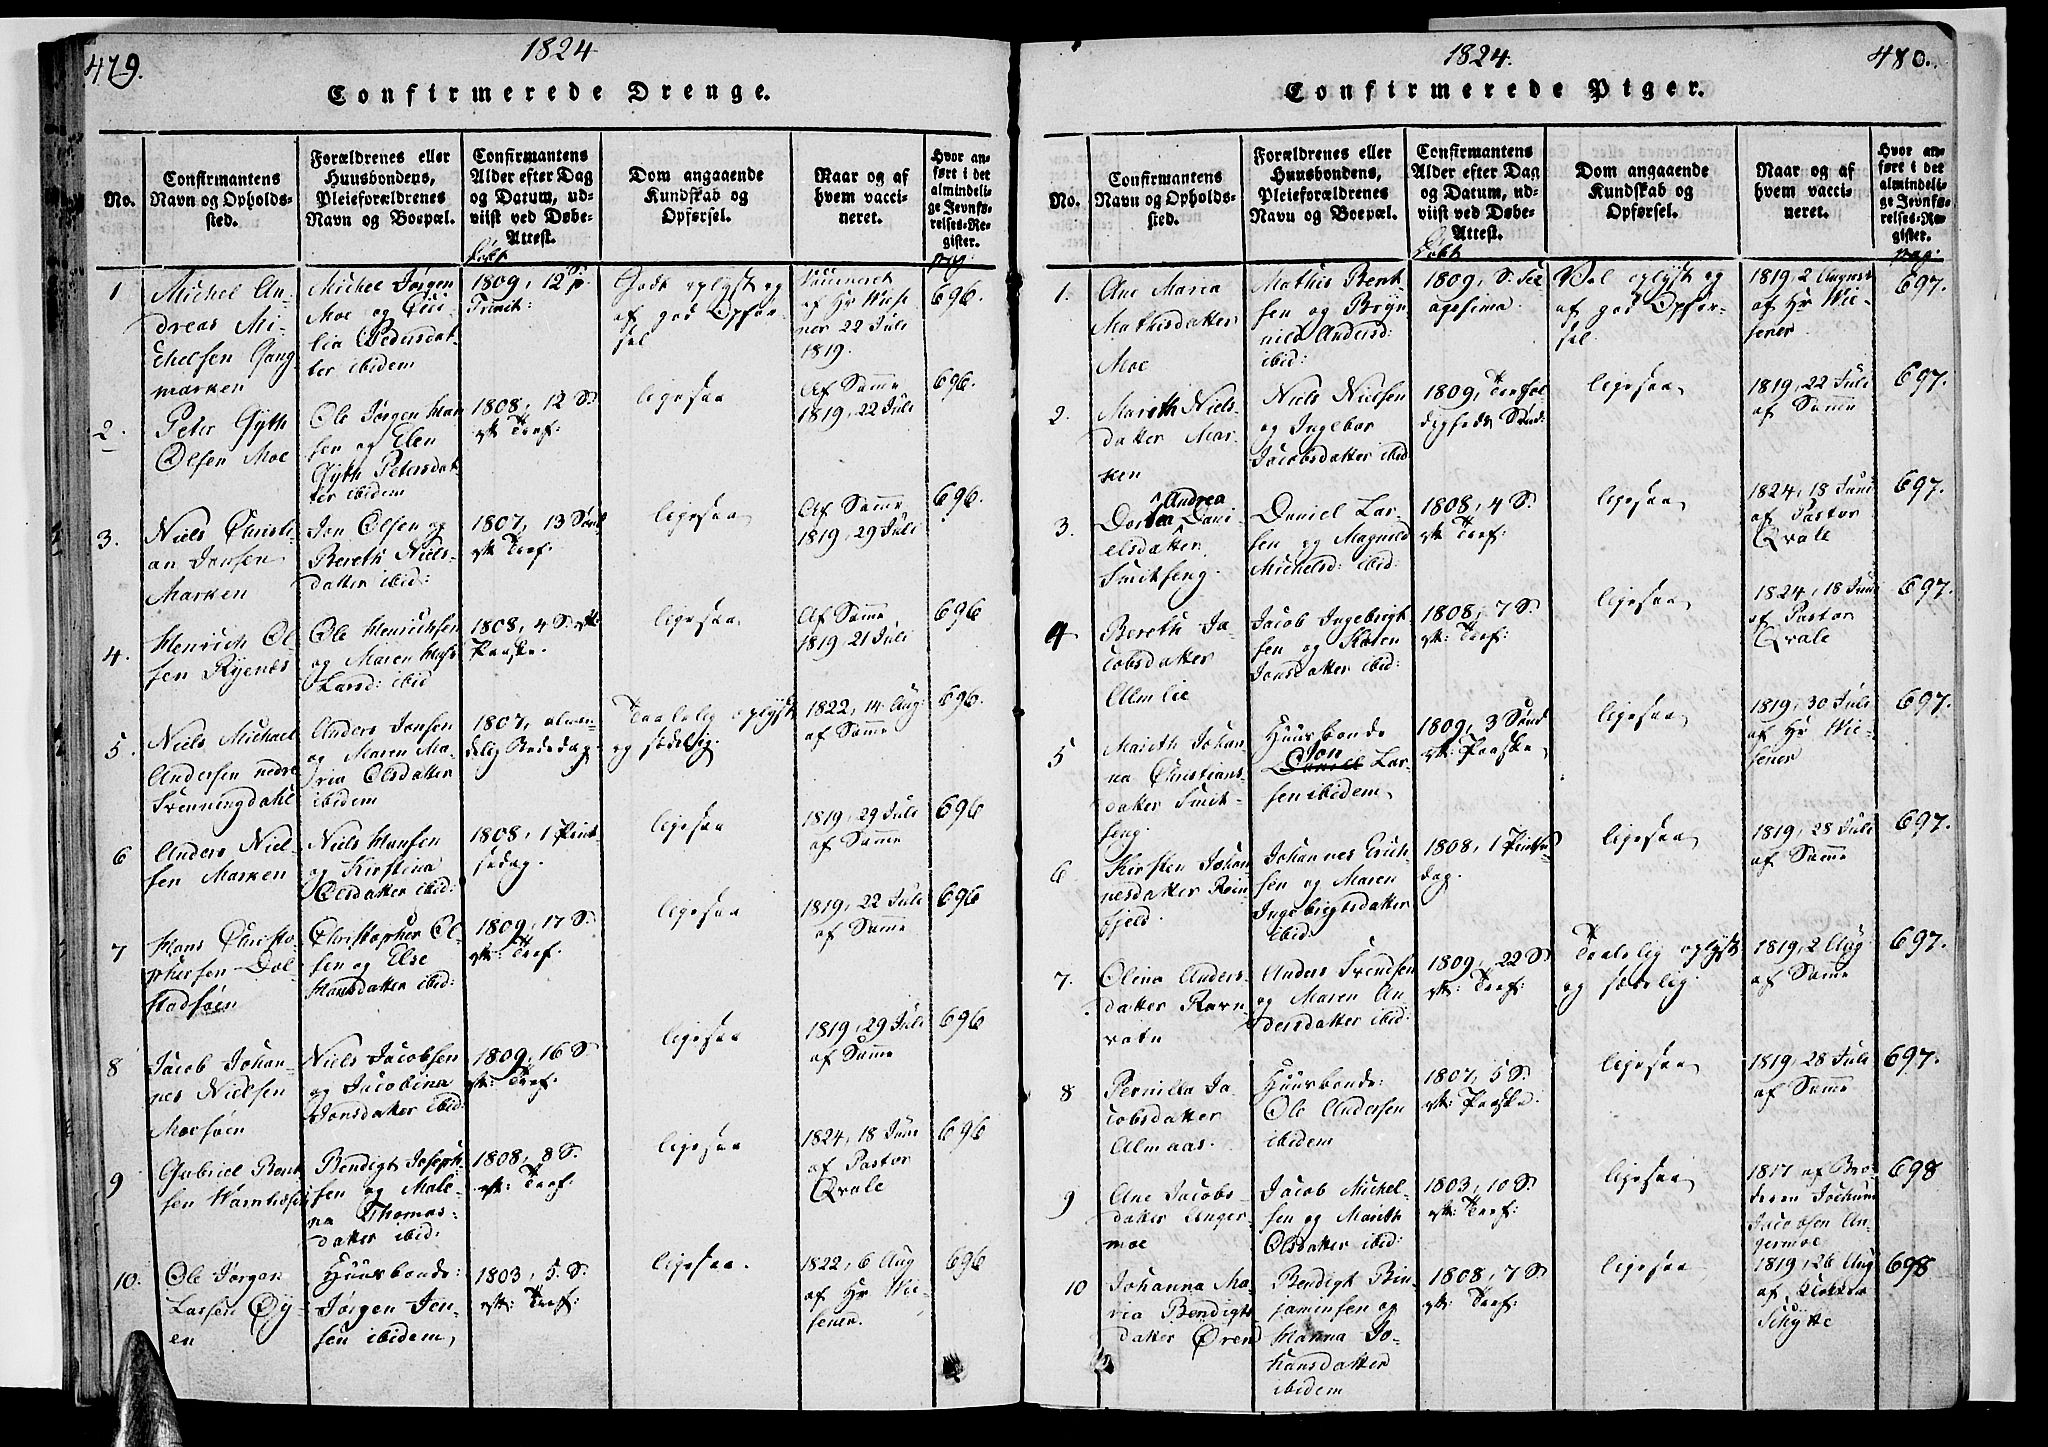 479.
1824
Confirmerede Drenge.
No.
Confirmantens
Navn og Opholds-
sted.
Forældrenes eller
Huusbondens,
Pleieforældrenes
Navn og Boepæl.
Confirmantens
Alder efter Dag
og Datum, ud-
viist ved Døbe-
Attest.
Døbt
Dom angaaende
Kundskab og
Opførsel.
Naar og af
hvem vacci-
neret.
Hvor an-
ført i det
almindeli-
ge Jevnfø-
relses-Re-
gister.
pag:
1
Michel An-
dreas Mi-
chelsen Gang
marken
Michel Jørgen
Moe og Cici-
lia Pedersdat-
ter ibidem
1809, 12 S. p.
Trinit:
Godt oplyst og
af god Opfør-
sel
Vaccineret
af Hr Wiese
ner 22 Juli
1819.
696.
2.
Peter Gyth
Olsen Moe
Ole Jørgen Han
sen og Elen
Gyth Petersdat
ter ibidem
1808, 12 S.
eft: Tref:
ligesaa
Af Samme
1819, 22 Juli
696.
3.
Niels Christi
an Jonsen
Marken
Jon Olsen og
Bereth Niels-
datter ibid:
1807, 13 Sønd
eft: Tref:
ligesaa
Af Samme
1819, 29 Juli
696.
4.
Henrich Ol-
sen Ryenes
Ole Henrichsen
og Maren
Larsd: ibid
1808, 4 S. eft:
Paaske.
ligesaa
Af Samme
1819 21 Juli
696
5.
Niels Michael
Andersen nedre
Svenningdahl
Anders Jonsen
og Maren Ma-
ria Olsdatter
ibidem
1807, almin-
delig Bededag.
Taalelig oplyst
og sædelig.
1822, 14 Aug:
af Samme
696.
6
Anders Niel-
sen Marken
Niels Hansen
og Kirstina
Olsdatter ibid:
1808, 1 Pint
sedag.
ligesaa
1819, 29 Juli
af Samme
696
7
Hans Christo-
phersen Dol-
stadsøen
Christopher Ol-
sen og Else
Hansdatter ibid:
1809, 17 S.
eft: Tref:
ligesaa
1819, 22 Juli
af Samme
696
8
Jacob Johan-
nes Nielsen
Moesøen
Niels Jacobsen
og Jacobina
Jonsdatter ibid:
1809, 16 S.
eft: Tref:
ligesaa
1819, 29 Juli
af Samme
696
9
Gabriel Bent
sen
Bendigt Joseph-
sen og Male-
na Thomas-
datter ibid:
1808, 8 S.
eft: Tref:
ligesaa
1824, 18 Juni
af Pastor
Qvale
696
10.
Ole Jørgen
Larsen Øy-
en
Huusbonde:
Jørgen Jen-
sen ibidem,
1803, 5. S.
eft: Tref:
ligesaa.
1822, 6 Aug
af Hr Wie-
sener.
696
1824.
480.
Confirmerede Piger.
No.
Confirmantens
Navn og Opholds-
sted.
Forældrenes eller
Huusbondens,
Pleieforældrenes
Navn og Boepæl.
Confirmantens
Alder efter Dag
og Datum, ud-
viist ved Døbe-
Attest.
Døbt
Dom angaaende
Kundskab og
Opførsel.
Naar og af
hvem vacci-
neret.
Hvor an-
ført i det
almindeli-
ge Jevnfø-
relses-Re-
gister.
pag:
1.
Ane Maria
Mathisdatter
Moe
Mathis Bent
sen og Bryn
nild Andersd:
ibid:
1809, S. Sex
agesima.
Vel oplyst og
af god Opfør-
sel.
1819, 2 August
af Hr Wie-
sener.
697.
2.
Mareth Niels-
datter Mar-
ken
Niels Nielsen
og Ingebor
Jacobsdatter ibid
1809, Trefol
digheds Sønd:
ligesaa
1819, 22 Juli
af Samme
697.
3.
Andrea
Dorthea Dani-
elsdatter
Smitseng.
Daniel Lar-
sen og Magnild
Michelsd: ibid:
1808, 4 S.
eft: Tref:
ligesaa
1824, 18 Juni
af Pastor
Qvale
697.
4
Bereth Ja-
cobsdatter
Almlie
Jacob Ingebrigt
sen og Karen
Jonsdatter ibid:
1808, 7 S.
eft: Tref:
ligesaa
1824, 18 Juni
af Pastor
Qvale
697.
5
Mareth Johan-
na Christians-
datter Smit-
seng.
Huusbonde
Jon
Lar-
sen ibidem,
1809, 3 Sønd
eft: Paaske,
ligesaa
1819, 30 Juli
af Hr Wie-
sener
697.
6
Kirsten Johan
nesdatter Rein
fjeld.
Johannes Erich-
sen og Maren
Ingebrigtsdatter
ibid:
1808, 1 Pintse
dag.
ligesaa
1819, 28 Juli
af Samme
697.
7.
Olina Anders-
datter Ravn-
vatn
Anders Svendsen
og Maren An-
dersdatter ibid:
1809, 22 S
eft: Tref:
Taalelig oplyst
og sædelig.
1819, 2 Aug
af Samme
697.
8
Pernilla Ja-
cobsdatter
Almaas.
Huusbonde:
Ole Andersen
ibidem
1807, 5 S.
eft: Paaske.
ligesaa
1819, 28 Juli
af Samme
697.
9
Ane Jacobs-
datter Anger-
moe
Jacob Michel-
sen og Mareth
Olsdatter ibid:
1803, 10 S.
eft: Tref:
ligesaa
1817 af Bro-
deren Jochum
Jacobsen An-
germoe
698
10
Johanna Ma-
ria Bendigts
datter Ørend
Bendigt Bin-
jaminsen og
Hanna Jo-
hansdatter
ibidem
1808, 7 S.
eft: Tref:
ligesaa
1819, 26 Aug
af Klokker
Schytte
698